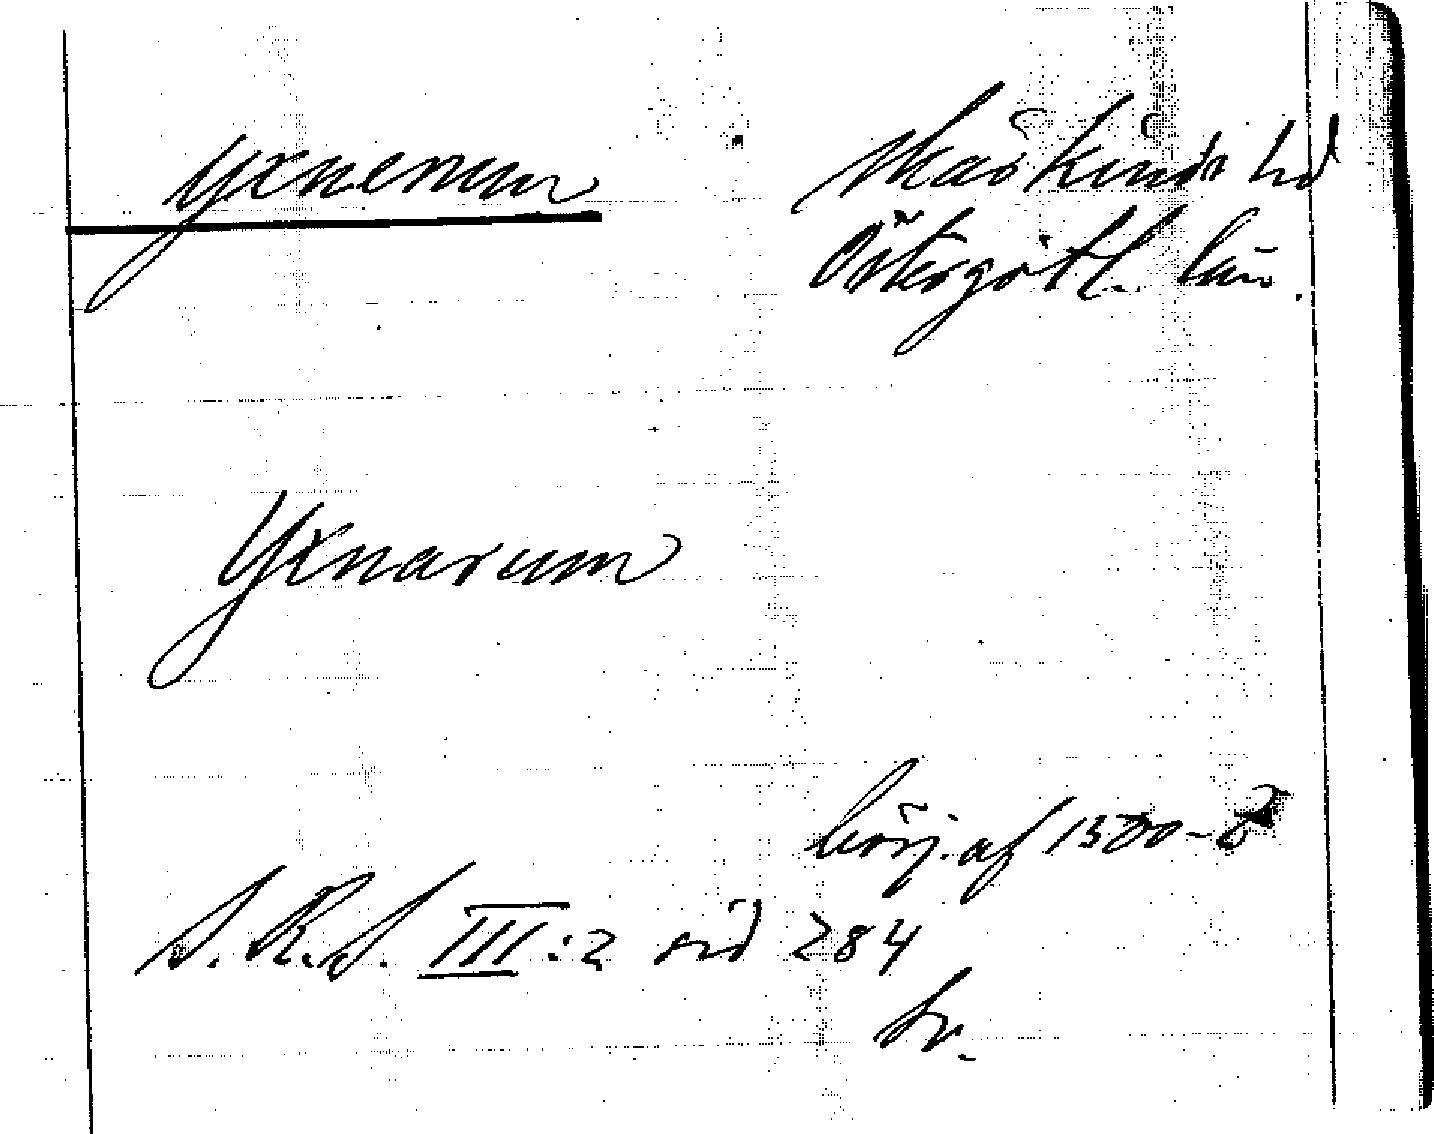 Yxnerum
Skärkinds hd
Östergötl. län.
Yxnarum
börj. af 1500-t
S. R. S. III:2 sid 284
Sv.